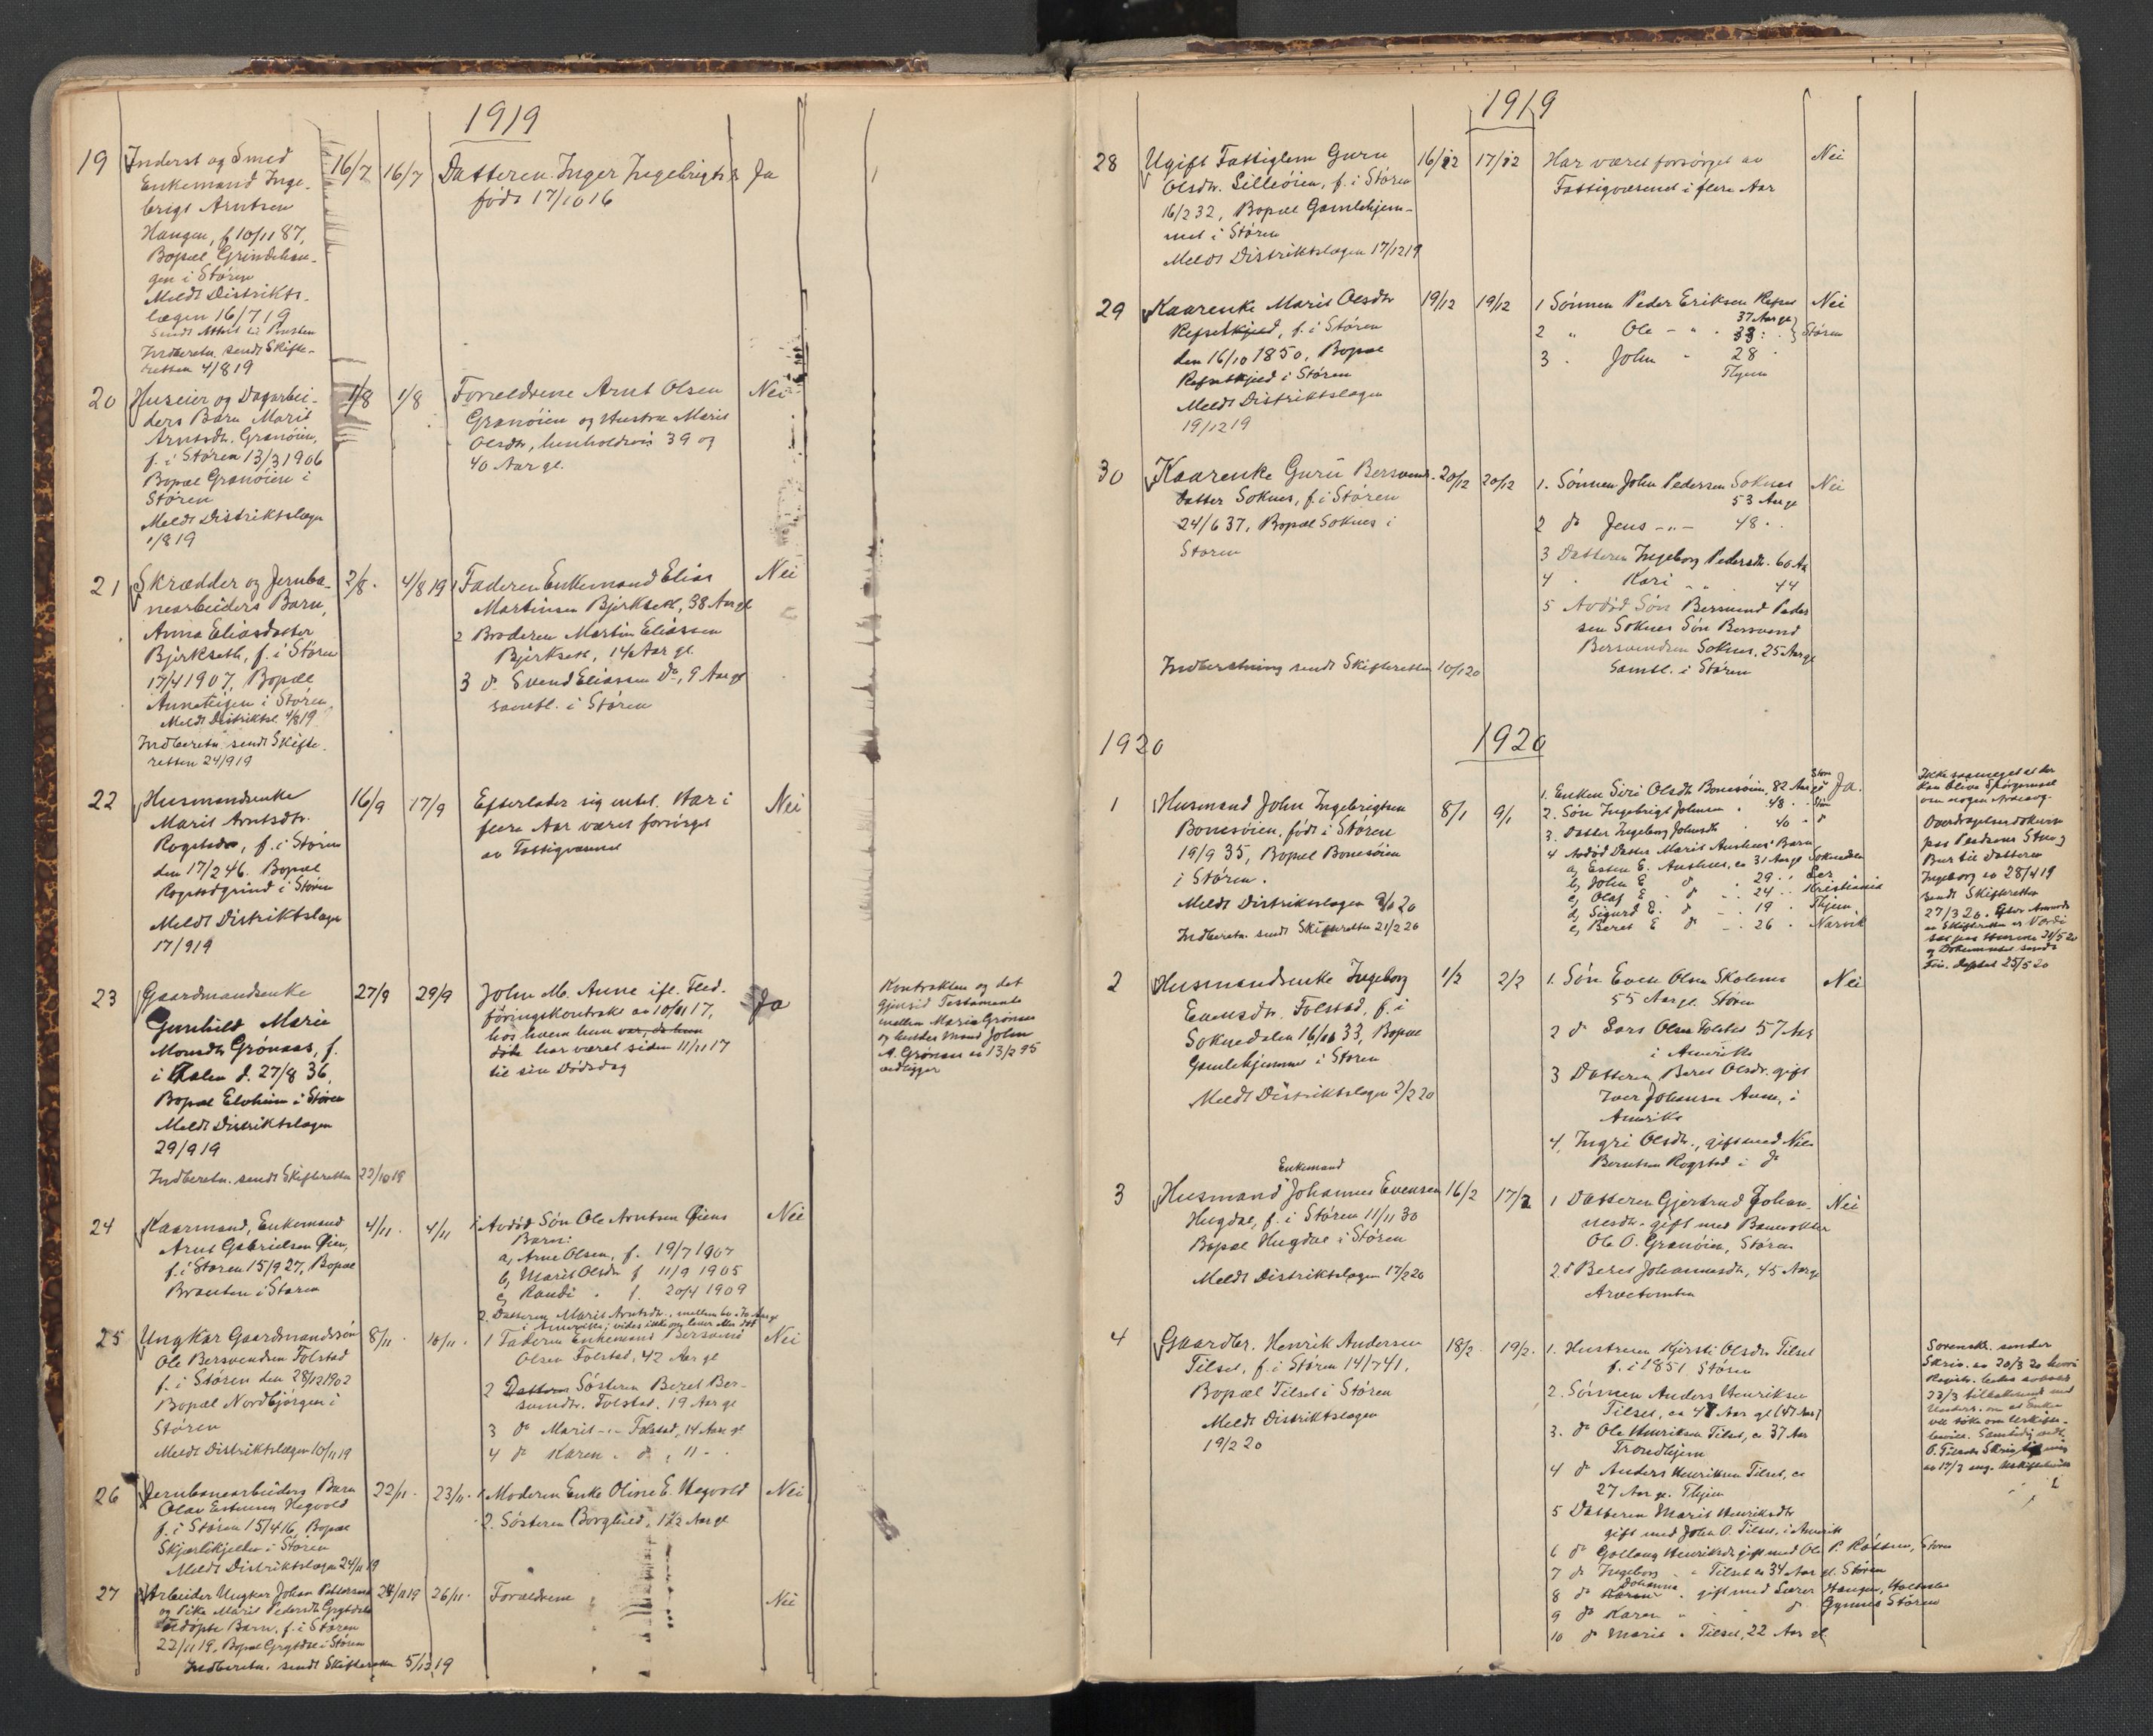 1919
19 Inderst og Smed
Enkemand Inge-
brigt Arntsen
Haugen, f. 10/11 87,
Bopæl Grindshau-
gen i Støren
Meldt Distrikts-
lægen 16/7 19
Sendt Attest til Presten
Indberetn. sendt Skifte-
retten 4/8 19
16/7 16/7 Datteren Inger Ingebrigtsd. Ja
født 17/10 16
20 Huseier og Dagarbei-
ders Barn Marit
Arntsdtr. Granøien,
f. i Støren 13/3 1906
Bopæl Granøien i
Støren
Meldt Distriktslægen
1/8 19
1/8 1/8 Forældrene Arnt Olsen Nei
Granøien og Hustru Marit
Olsdtr, henholdsvis 39 og
40 Aar gl.
21 Skrædder og Jernba-
nearbeiders Barn,
Anna Eliasdatter
Bjerkseth, f. i Støren
17/4 1907, Bopæl
i Støren
Meldt Distriktsl. 4/8 19
Indberetn. sendt Skifte-
retten 24/9 19
2/8. 4/8 19 1 Faderen Enkemand Elias Nei
Martinsen Bjerkset, 38 Aar gl
2 Broderen Martin Eliassen
Bjerkset, 14 Aar gl.
3 do Svend Eliassen do, 9 Aar gl
samtl. i Støren
22 Husmandsenke
Marit Arntsdtr.
f. i Støren
den 17/2 46. Bopæl
Rogstadgrind i Støren
Meldt Distriktslægen
17/9 19
16/9 17/9 Efterlader sig intet. Har i Nei
flere Aar været forsørget
av Fattigvæsenet
23 Gaardmandsenke
Gunhild Marie
Grønaas, f.
i Aalen d. 27/8 36,
Bopæl Elvheim i Støren
Meldt Distriktslægen
29/9 19
Indberetn. sendt Skifteretten 22/10 19
27/9 29/9 John M. Aune ifl. Fled- Ja
føringskontrakt av 10/11 17,
hos hvem hun var, da hun
døde har været siden 11/11 17
til sin Dødsdag
Kontrakten og det
gjensid. Testamente
mellem Marie Grønaas
og hendes Mand John
A. Grønaas av 13/2 95
vedligger
24 Kaarmand, Enkemand
Arnt Gabrielsen Øien,
f. i Støren 15/9 27, Bopæl
Brauten i Støren
4/11. 4/11 1 Avdød Søn Ole Arntsen Øiens Nei
Barn:
a, Arne Olsen, f. 19/7 1907
b, Marit Olsdtr f 11/9 1905
c, Randi " f. 20/4 1909
2. Datteren Marit Arntsdtr., mellem 60 - 70 Aar gl
i Amerika; vides ikke om lever eller død
25 Ungkar Gaardmandssøn
Ole Bersvendsen Folstad
f. i Støren den 28/12 1902
Bopæl Nordbjørgen i
Støren
Meldt Distriktslægen 10/11 19
8/11. 10/11. 1 Faderen Enkemand Bersvend Nei
Olsen Folstad, 42 Aar gl
2 Datteren Søsteren Beret Ber-
svendtr. Folstad, 19 Aar gl
3 do Marit -"- Folstad, 14 Aar gl
4 do Karen " do, 11 - .
26 Jernbanearbeiders Barn
Olav Estensen Hegvold
f. i Støren 15/4 16, Bopæl
i Støren
Meldt Distriktslægen 24/11 19
22/11. 23/11. 1 Moderen Enke Oline E. Hegvold Nei
2. Søsteren Borghild, 1 1/2 Aar gl
27 Arbeider Ungkar Johan Pettersen
og Pike Marit Pedersdtr
udøpte Barn, f. i Støren
22/11 19, Bopæl i Støren
Indberetn. sendt Skifteretten 5/12 19
24/11 19 26/11. Forældrene Nei
1919
28 Ugift Fattiglem Guru
Olsdtr. Lilleøien, f. i Støren
16/2 32, Bopæl Gamlehjem-
met i Støren
Meldt Distriktslægen 17/12 19
16/12 17/12 Har været forsørget av Nei
Fattigvæsenet i flere Aar
29 Kaarenke Marit Olsdtr
f. i Støren
den 16/10 1850, Bopæl
i Støren
Meldt Distriktslægen
19/12 19
19/12 19/12 1 Sønnen Peder Eriksen Nei
37 Aar gl
2 " Ole - " . 33 . . Støren
3 . John " 28 .
Thjem
30 Kaarenke Guru Bersvend-
datter Soknes, f. i Støren
24/6 37, Bopæl Soknes i
Støren
Indberetning sendt Skifteretten 10/1 20
20/12 20/12 1. Sønnen John Pedersen Soknes Nei
53 Aar gl
2 do Jens -"- 48 . .
3 Datteren Ingeborg Pedersdtr. 60 Aar
4 . Kari " " 44
5 Avdød Søn Bersvend Peder
sen Soknes Søn Bersvend
Bersvendsen Soknes, 25 Aar gl
Samtl. i Støren
1920 1920
1 Husmand John Ingebrigtsen
Bonesøien, født i Støren
19/9 35, Bopæl Bonesøien
i Støren.
Meldt Distriktslægen 9/1 20
Indberetn. sendt Skifteretten 21/2 20
8/1 9/1 1. Enken Siri Olsdtr Bonesøien, 82 Aar gl Støren Ja.
2. Søn Ingebrigt Johnsen . 48 . .
3. Datter Ingeborg Johnsdtr . 40 " do
4 Avdød Datter Marit Aushus' Barn
a, Esten E. Aushus, ca 31 Aar gl Soknedalen
b, John E. do . 29 . .
c, Olaf E " do -. 24 . . Kristiania
d, Sigurd E. do -. . 19 . Thjem
e, Beret E do -. . 26 . Narvik
Ikke saameget at der
kan blive Spørgsmaal
om nogen
Ingeborg av 28/4 19
sendt Skifteretten
27/3 20.
2 Husmandsenke Ingeborg
Evensdtr. Folstad, f. i
Soknedalen 33, Bopæl
Gamlehjemmet i Støren
Meldt Distriktslægen 2/2 20
1/2 2/2 1. Søn Even Olsen Nei
55 Aar gl. Støren
2 do Lars Olsen Folstad 57 Aar
i Amerika
3 Datteren Beret Olsdtr. gift
Iver Johansen Aune, i
Amerika
4, Ingri Olsdtr., gift med Nils
Berntsen Rogstad i do
3 Enkemand
Husmand Johannes Evensen
Hugdal, f. i Støren 11/11 30
Bopæl Hugdal i Støren
Meldt Distriktslægen 17/2 20
16/2 17/2 1 Datteren Gjertrud Johan- Nei
nesdtr. gift med Banevokter
Ole O. Granøien, Støren
2. do Beret Johannesdtr, 45 Aar gl
Arvetomten
4 Gaardbr. Henrik Andersen
Tilset, f. i Støren 14/7 41,
Bopæl Tilset i Støren
Meldt Distriktslægen
19/2 20
18/2. 19/2. 1. Hustruen Kjersti Olsdtr Tilset
f. i 1851 Støren
2. Sønnen Anders Henriksen
Tilset, ca 47 Aar gl (47 Aar)
3. do Ole Henriksen Tilset, ca 37 Aar
Trondhjem
4 do Anders Henriksen Tilset, ca
27 Aar gl. Thjem
5 Datteren Marit Henriksdtr
gift med John O. Tilset, i Amerika
6 do Gollaug Henriksdtr gift med Ole P. Støren
7 do Ingeborg " " Tilset ca 34 Aar gl. Støren
8 do Karen Johanna . gift med Haugen,
9 do Karen " . do Gynnes Støren
10 do Marit " Tilset, 22 Aar gl.
Sorenskr. sender
Skriv. av 20/3 20
23/3 tilbakesendt med